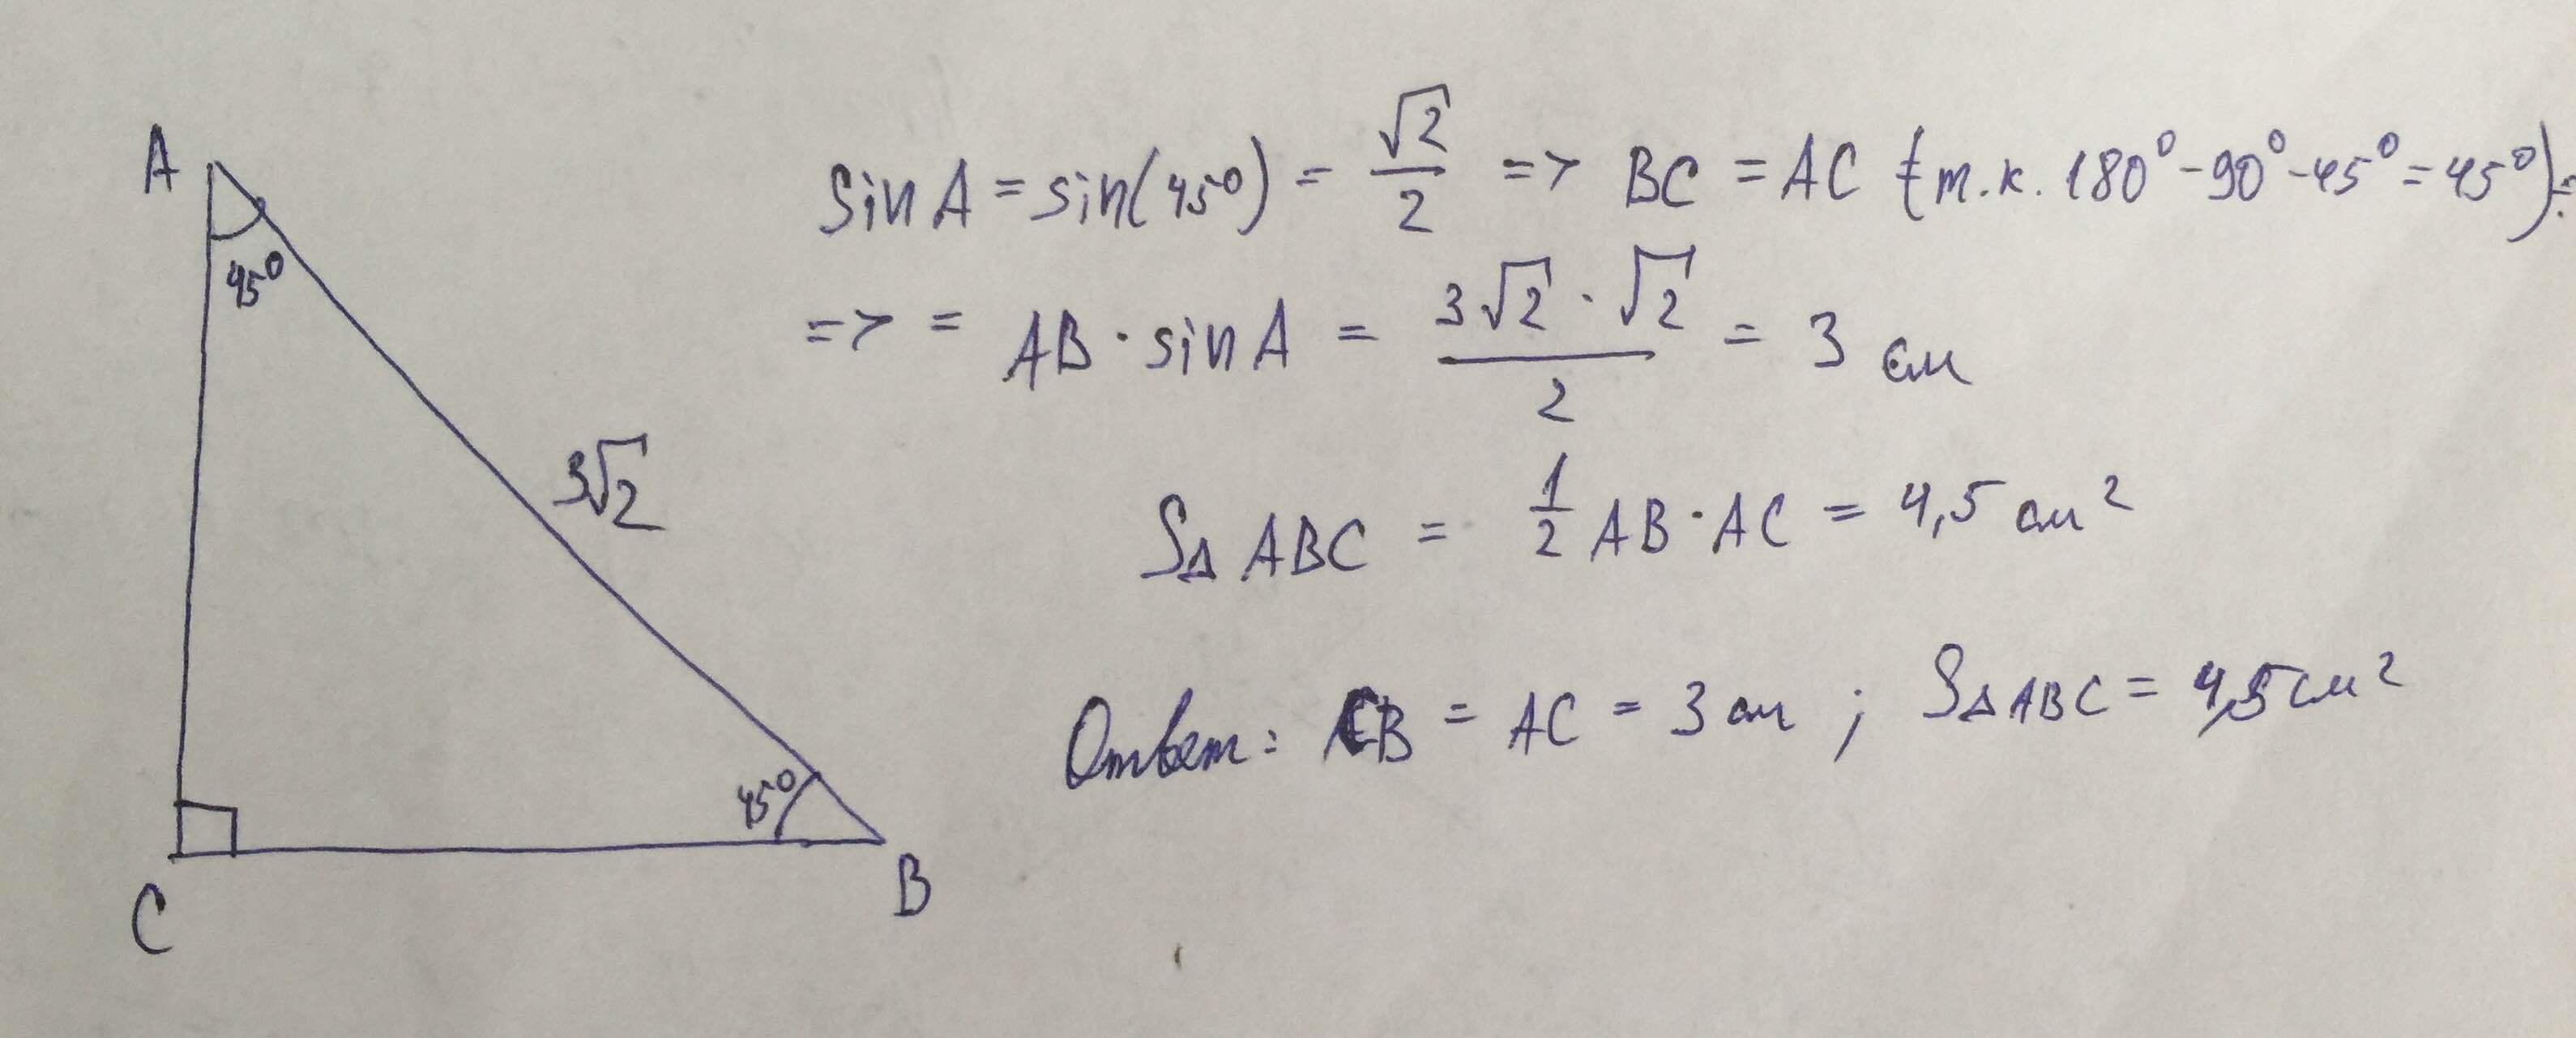 A
45°
3√2
45°
C
B
sin A = sin(45°) = √2/2 => BC = AC (т.к. 180° - 90° - 45° = 45°) =
=> = AB · sin A = 3√2 · √2 / 2 = 3 см
S△ ABC = 1/2 AB · AC = 4,5 см²
Ответ: CB = AC = 3 см ; S△ ABC = 4,5 см²